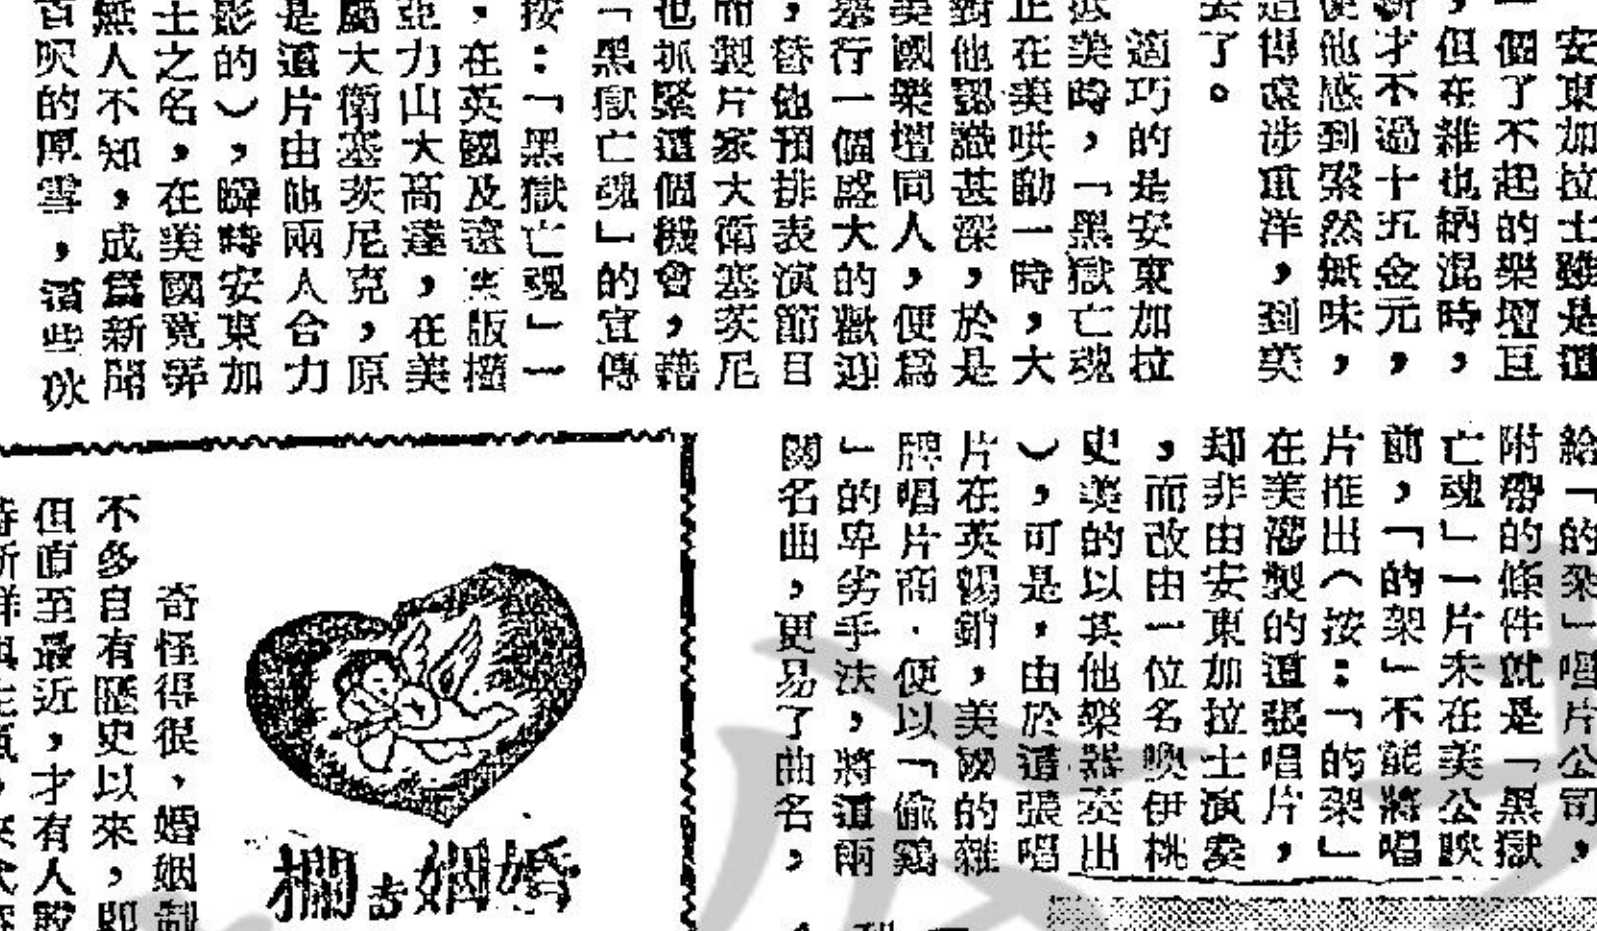 安東加拉士雖是這
一個了不起的樂壇巨
，但在維也納混時，
薪才不過十五金元，
使他感到索然無味，
這得遠涉重洋，到美
去了。
適巧的是安東加拉
美時，「黑獄亡魂
正在美哄動一時，大
對他認識甚深，於是
美國樂壇同人，便爲
舉行一個盛大的歡迎
，替他預排表演節目
而製片家大衛塞茨尼
也抓緊這個機會，藉
「黑獄亡魂」的宣傳
按：「黑獄亡魂」一
，在英國及遠東版權
亞力山大高達，在美
屬大衛塞茨尼克，原
是這片由他兩人合力
影的），瞬時安東加
士之名，在美國竟弄
無人不知，成爲新聞
百呎的厚雪，這些冰
給「的架」唱片公司，
附帶的條件就是「黑獄
亡魂」一片未在美公映
前，「的架」不能將唱
片推出（按：「的架」
在美灌製的這張唱片，
却非由安東加拉士演奏
，而改由一位名喚伊桃
史美的以其他樂器奏出
），可是，由於這張唱
片在英暢銷，美國的雜
牌唱片商，便以「偷鷄
」的卑劣手法，將這兩
闋名曲，更易了曲名，
婚姻專欄
奇怪得很，婚姻制
不多自有歷史以來，即
但直至最近，才有人